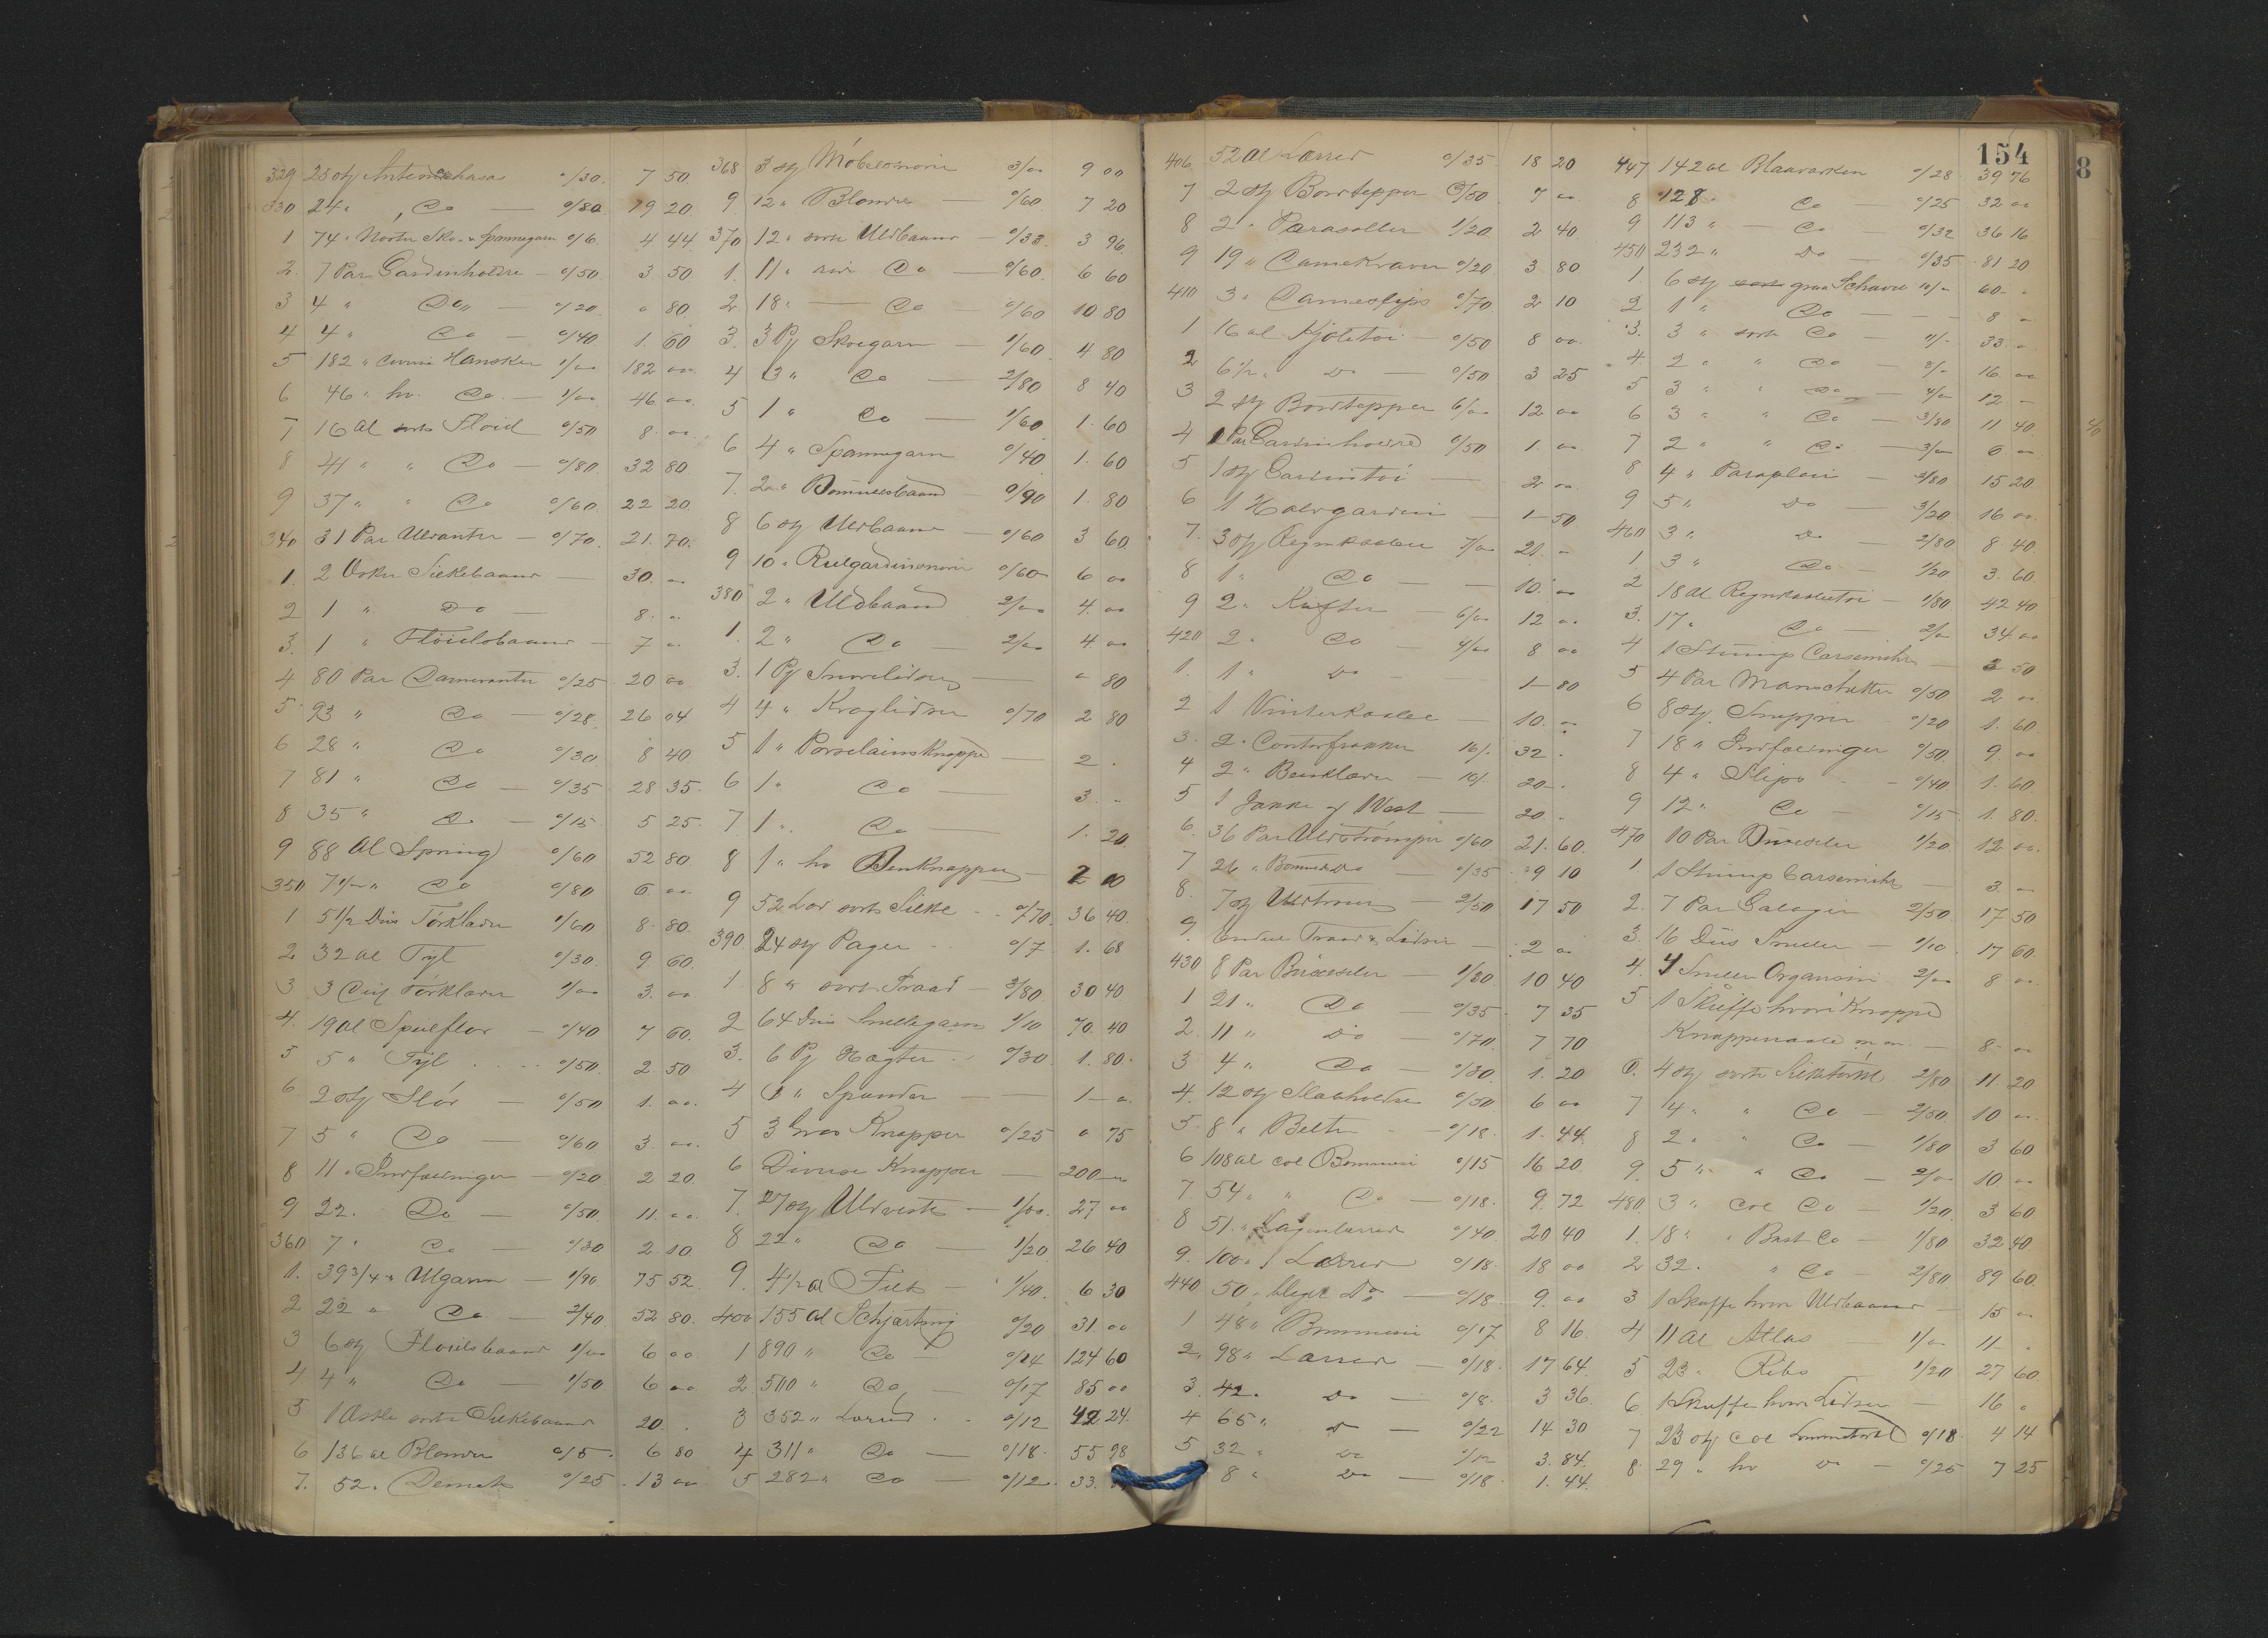 329 25 St 0/30. 7 50.
330 24 " Do — 0/80 19 20.
1 74 " Sko- & Spannegarn 0/6. 4 44
2. 7 Par Gardinholdre — 0/50. 3. 50
3 4 " Do " — 0/20. 0 80
4 4 " Do — 0/40 1. 60
5 182 " Hansker 1/00 182 00.
6 46 " hv. Do. — 1/00. 46 00.
7 16 Al sort Fløiel 0/50 8. 00.
8 41 " " Do — 0/80. 32 80
9 37 " " Do 0/60. 22 20.
340 31 Par Ulvanter — 0/70. 21. 70.
1. 2 Æsker Silkebaand — 30. 00
2 1 " Do — 8. 00
3. 1 " Fløielsbaand — 7 00
4 80 Par Damevanter 0/25 20 00
5 93 " Do — 0/28. 26 04
6 28 " Do 0/30. 8 40.
7 81 " Do — 0/35. 28 35.
8 35 " Do — 0/15 5 25.
9 88 Al Spring 0/60 52 80.
350 7 1/2 " Do 0/80 6 00.
1 5 1/2 Dus Tørklæder 1/60 8. 80.
2. 32 Al Tyl 0/30. 9 60.
3 3 Tørklæder 1/00 3. 00
4. 19 Al Speilflor — 0/40 7 60.
5 5 " Tyl . . . . 0/50. 2 50
6 2 St Slør — 0/50 1. 00.
7 5 " Do — 0/60 3. 00.
8 11 " Indfatninger — 0/20 2 20.
9 22. Do — 0/50 11. 00.
360 7 " Do — 0/30 2. 10.
1. 39 3/4 " Ulgarn — 1/90 75 52.
2 22 " Do — 2/40. 52 80.
3 6 St Fløielsbaand 1/00 6 00
4 4 " Do — 1/50 6 00
5 1 Æske sorte Silkebaand 20. .
6 136 al Blonder 0/5. 6 80
7. 52. 0/25 13 00
368 3 St Møbelsnore 3/00 9 00
9. 12 " Blonder — 0/60 7 20
370 12 " sorte Uldbaand — 0/33. 3 96.
1. 11 " Do — 0/60. 6 60
2 18 " — Do — 0/60 10 80
3. 3 Pj Skogarn — 1/60. 4 80
4 3 " Do — 2/80 8 40
5 1 " Do — 1/60 1. 60
6 4 " Spannegarn 0/40 1. 60
7. 2 " Bomuldsbaand — 0/90 1. 80
8 6 St Uldbaand — 0/60 3 60.
9 10 " Rulgardinsnore 0/60 6 00
380 2 " Uldbaand 2/00 4. 00
1. 2 " Do — 2/00 4. 00
3. 1 Pj Snorelidser — 0 80
4 4 " Kroglidser 0/70 2 80
5 1 " Porselainsknappe — 2 .
6 1 " Do — 3. .
7. 1 ". Do — 1. 20.
8 1 " hv Benknapper — 2 00
9 52 Lod sort Silke . . 0/70. 36 40.
390 24 St Pager . . 0/7 1. 68
1. 8 " sort Traad — 3/80 30 40.
2 64 Dus Snellegarn 1/10 70. 40
3. 6 Pj Hægter . . 0/30. 1. 80.
4 1 " Spænder — 1 — 0.
5 3 Gros Knapper 0/25 0 75
6 Diverse Knapper — 200 —
7. 27 St Uldveste — 1/00. 27 00
8 22 " Do — 1/20 26 40
9. 4 1/2 al Filt — 1/40. 6 30
400 155 Al Schjørting 0/20 31. 00
1 890 " Do 0/14 124 60
2. 500 " Do — 0/17 85 00
3 352 " Lærred . . 0/12 42 24.
4 311 " Do — 0/18. 55 98
5 282 " Do — 0/12. 33.
406 52 Al Lærred 0/35 18 20
7 2 St Bordtepper 3/50 7 00
8 2 " Parasoller 1/20. 2 40
9 19 " Damekraver 0/20 3 80
410 3 " Dameslips 0/70 2 10
1 16 al Kjoletøi — 0/50 8 00.
2 6 1/2 " Do — 0/50 3 25
3 2 St Bordtepper 6/00 12 00
4 2 Par Gardinholdre 0/50 1. 00
5 1 St Gardintøi — 2 00
6 1 Halvgardin — 1 — 50
7. 3 St Regnkaaber 7/00 21. —
8 1 " Do — 10. 00
9 2 " Kufter — 6/00 12 00
420 2 " Do — 4/00 8 00
1. 1 " Do — 1 — 80
2 1 Vinterkaabe — 10. 00
3. 2 " Contorfrakker 16/. 32 .
4 2 " Benklæder — 10/. 20 — .
5 1 Jakke og Vest — 20. .
6. 36 Par Uldstrømper 0/60 21. 60.
7 26 " Bomulds Do — 0/35 9 10
8. 7 St Uldtrøier — 2/50 17 50
9. Traad & Lidser — 2 00
430 8 Par Buxeseler — 1/30 10 40
1 21 " Do — 0/35. 7 35
2. 11 " Do — 0/70. 7 70
3 4 " Do — 0/30. 1. 20
4. 12 St 0/50 6 00
5. 8 " Belter . — 0/18. 1. 44
6 108 al col Bommesi 0/15 16 20.
7. 54 " " Do — 0/18. 9. 72
8 51. " Lagenlærred 0/40. 20 40
9. 100 " Lærred 0/18. 18 00
440 50 " bleget Do — 0/18. 9. 00
1 48 " Bommesi 0/17 8 16.
2. 98 " Lærred — 0/18. 17 64.
3. 42. Do — 0/8. 3 36.
4 65 " D — 0/22 14 30
5 32 " Do 0/12 3. 84.
8 " Do — 0/18 1. 44.
154
447 142 al Blaavarken 0/28. 39 76
8 128 " Do — 0/25 32 00
9 113 " — Do — 0/32 36 16
450 232 " Do — 0/35 81 20
1. 6 St graa Schavl 10/- 60 - .
2 1 " Do — — 8 —
3. 3 " sort Do — 11/- 33 ..
4. 2 " " Do — 8/- 16 00
5 3 " " Do — 4/00 12 —
6 3 " " Do — 3/80 11 40.
7 2 " " Do — 3/00 6 00
8 4 " Paraplyer — 3/80 15 20
9 5 " Do — 3/20 16 00.
460 3 " Do — 2/80 8 40.
1. 3 " Do — 1/20 3. 60.
2 18 Al Regnkaabetøi — 42 40
3. 17 " Do — 2/00 34 00
4 1 Stump Carsemihr — 50
5 4 Par Manschetter 0/50 2 00
6 8 St. Snipper 0/20 1. 60
7 18 " Indfatninger 0/50. 9 00
8 4 " Slips . . 0/40 1. 60.
9 12 " Do — 0/15. 1. 80.
470 10 Par Buxeseler 1/20. 12 00.
1 1 Stump Carsemihr — 3. 00
2. 7 Par Galoger 2/50 17 50
3. 16 Dus Sneller — 1/10 17 60
4. 4 Sneller Organsin 2/00 8 00
5 1 Skuffe hvori Knapper
Knappenaale m m — 8 — 00
6. 4 St sorte Silketørkl 2/80 11 20
7 4 " " Do — 2/50. 10 00
8 2 " " Do — 1/80 3 60
9. 5 " " Do — 2/00 10 00
480. 3 " col Do — 1/20. 3 60
1. 18 " " Bast Do — 1/80 32 40.
2 32. " Do — 2/80 89 60.
3 1 Skuffe hvori Uldbaand — 15 00
4 11 al Atlas — 1/00 11 — .
5 23 " Ribs — 1/20 27 60
6. 1 Skuffe hvori Lidser — 16 0
7 23 St col Lommetørkl 0/18. 4 14
8. 29 " hv Do — 0/25 7 25
8